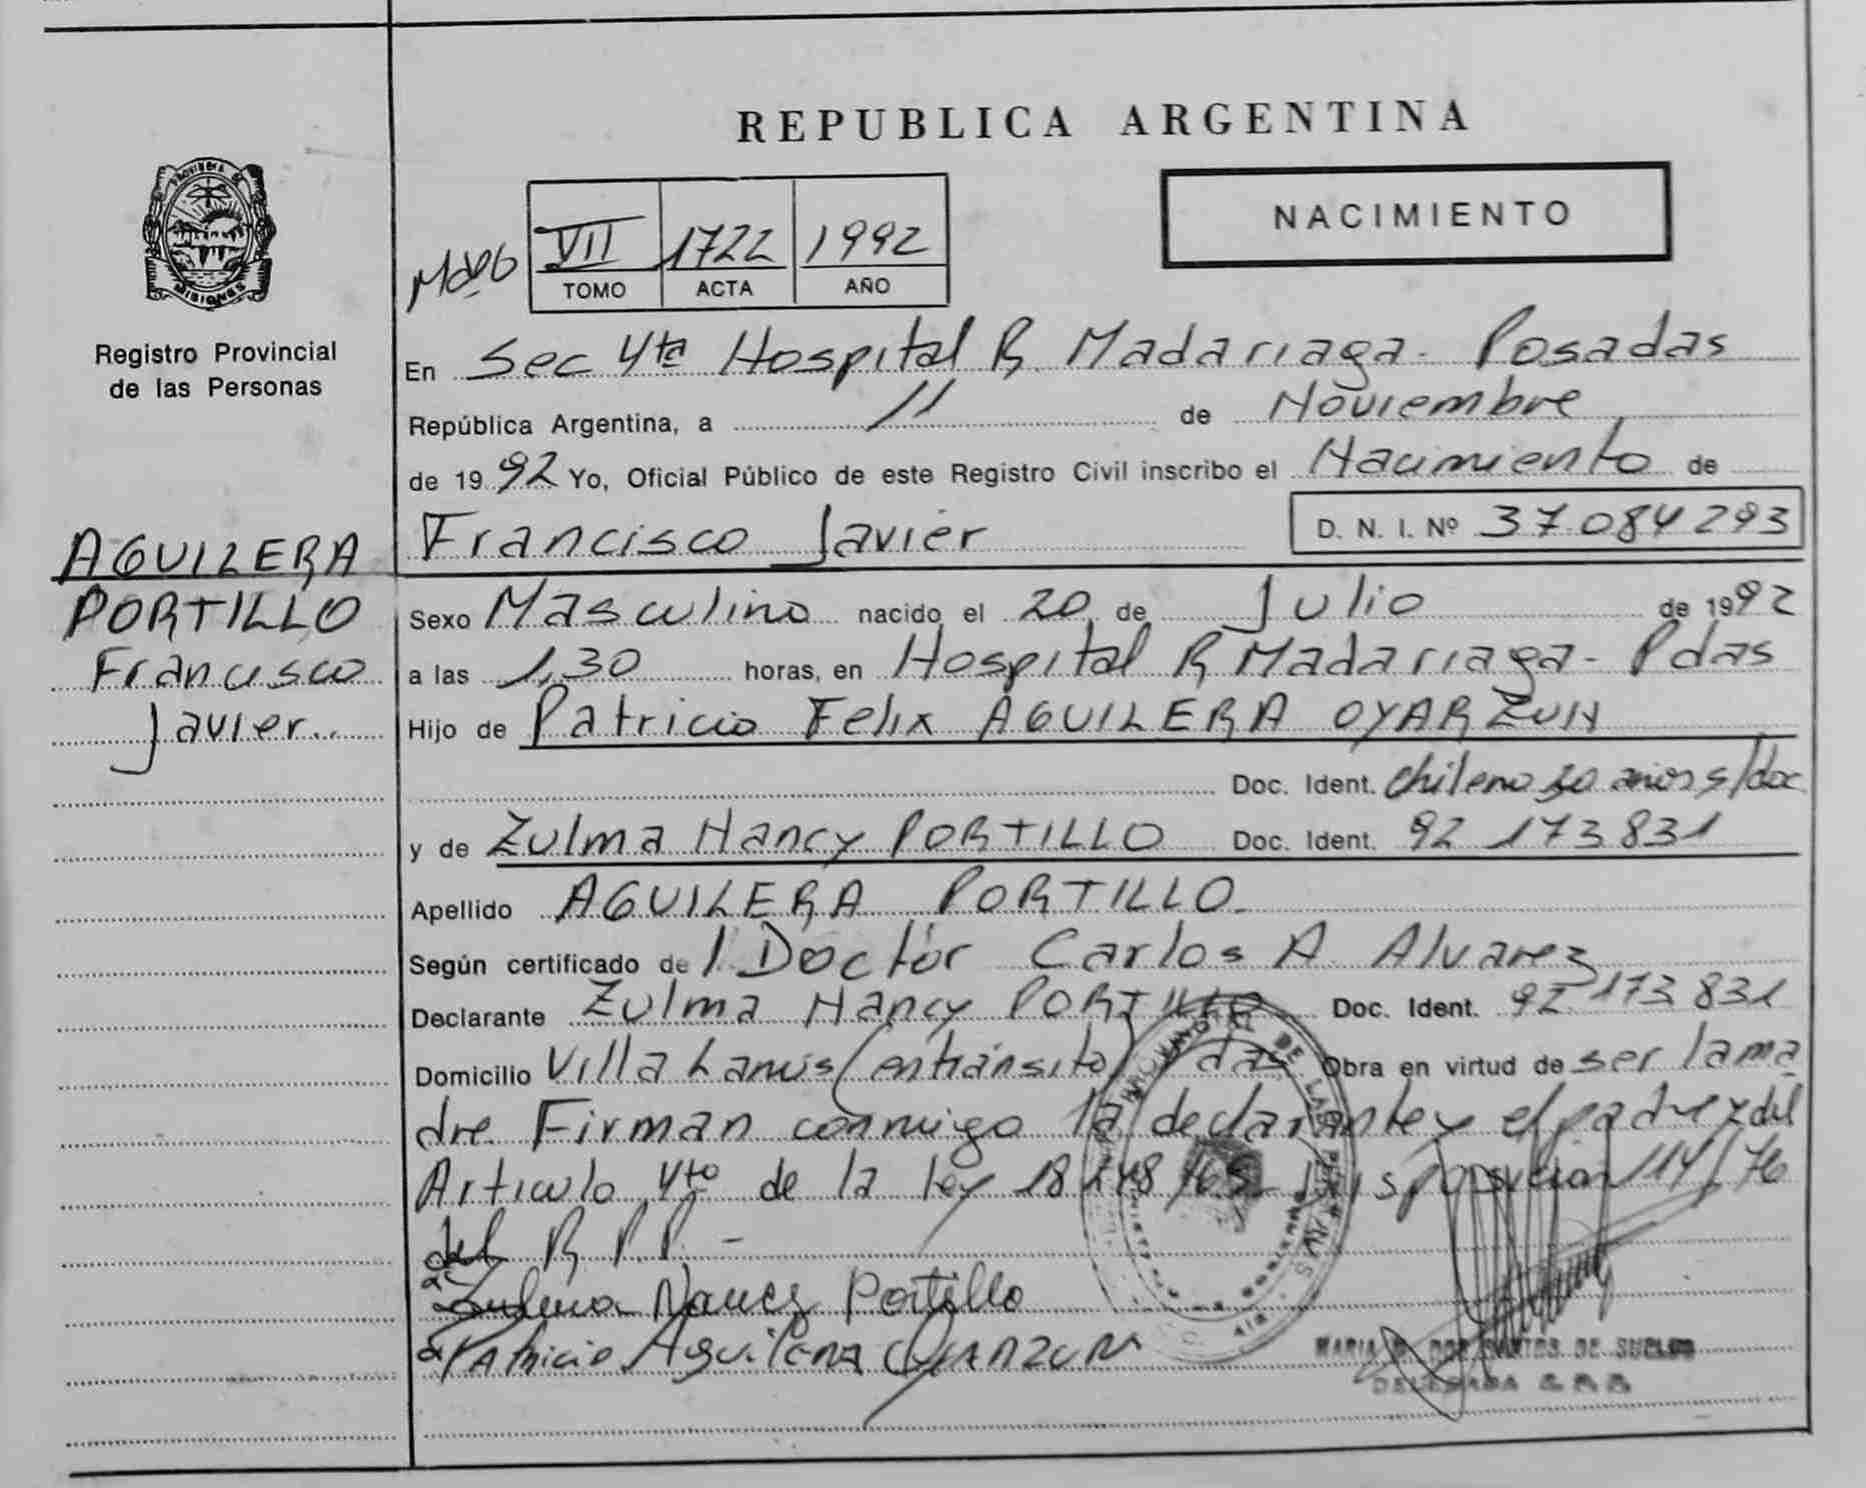 REPUBLICA ARGENTINA
NACIMIENTO
VII 1722 1992
TOMO ACTA AÑO
PROVINCIA DE
MISIONES
Registro Provincial
de las Personas
En Sec 4ta Hospital R. Madariaga - Posadas
República Argentina, a 11 de Noviembre
de 1992 Yo, Oficial Público de este Registro Civil inscribo el Nacimiento de
Francisco Javier D. N. I. Nº 37.084 293
AGUILERA
PORTILLO
Francisco
Javier
Sexo Masculino nacido el 20 de Julio de 1992
a las 1,30 horas, en Hospital R Madariaga - Pdas
Hijo de Patricio Felix AGUILERA OYARZUN
Doc. Ident. chileno 30 años s/doc
y de Zulma Nancy PORTILLO Doc. Ident. 92 173 831
Apellido AGUILERA PORTILLO
Según certificado del Doctor Carlos A. Alvarez
Declarante Zulma Nancy PORTILLO Doc. Ident. 92 173 831
Domicilio Villa Lanús (en tránsito) Pdas Obra en virtud de ser la ma
dre. Firman conmigo la declarante y el padre y del
Articulo 4to de la ley 18 248/69 Disposicion 114/76
del R P P. -
Zulma Nancy Portillo
Patricio Aguilera Oyarzun
MARIA DOS SANTOS DE
DELEGADA